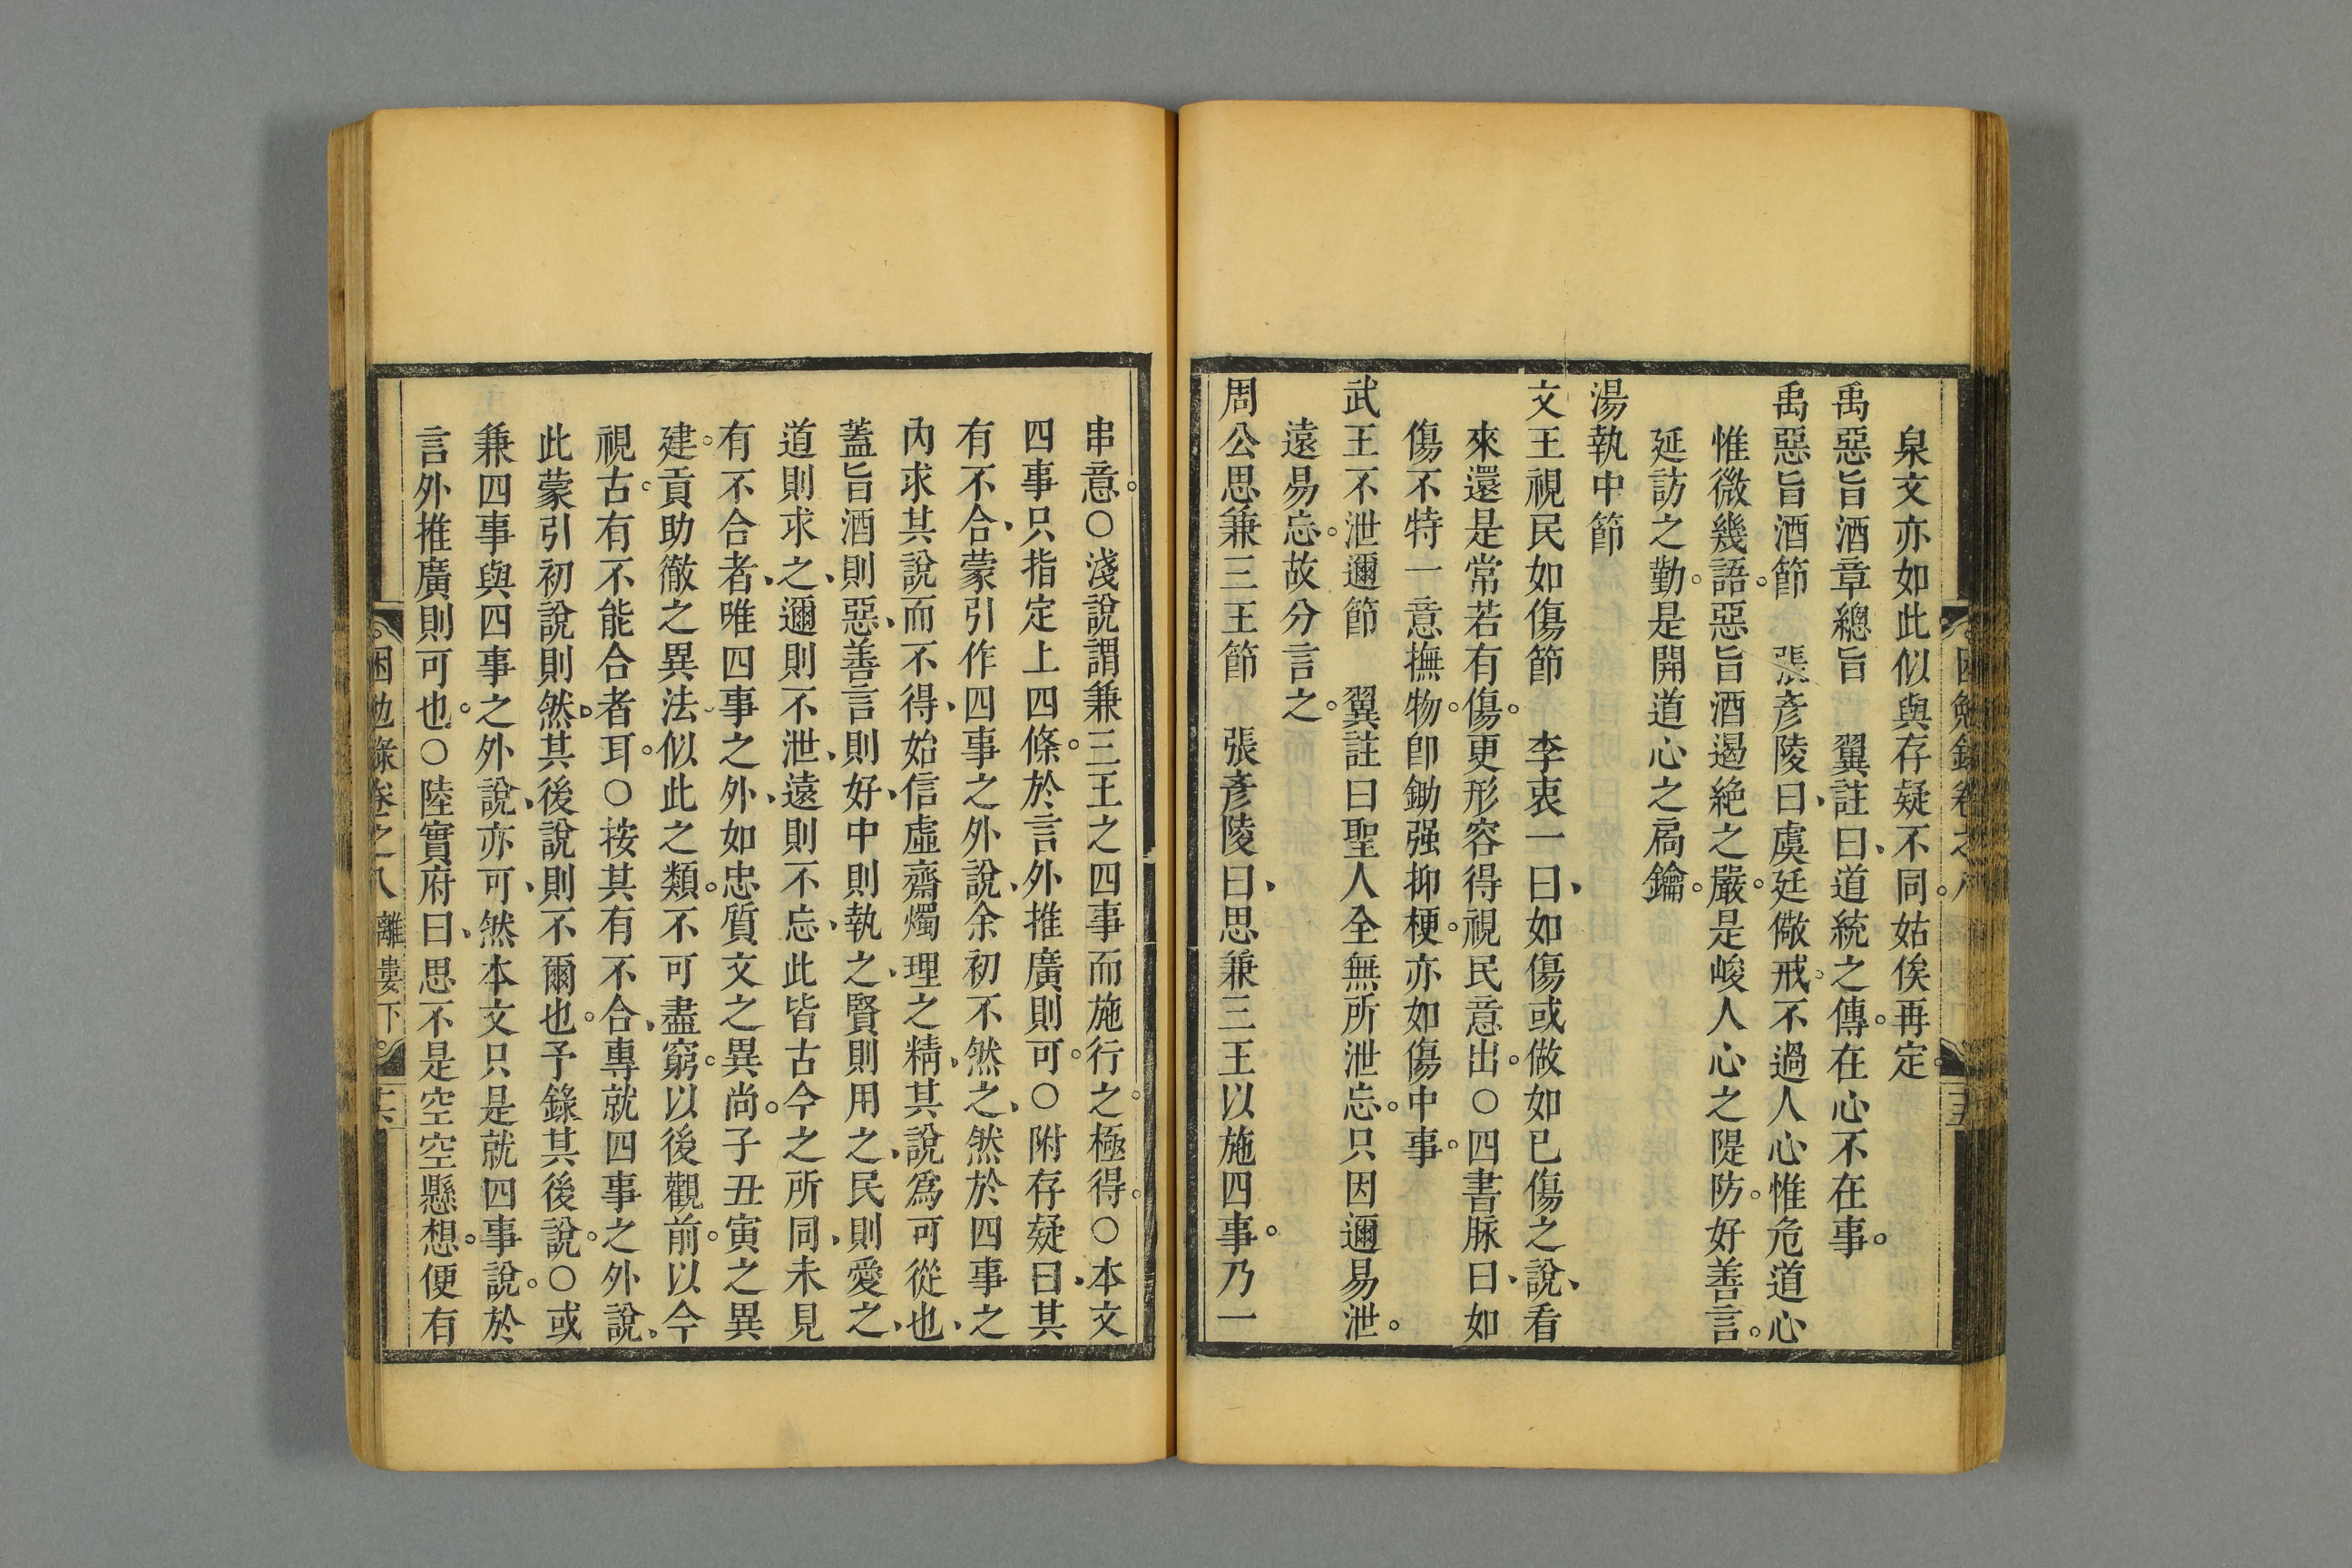 泉文亦如此似與存疑不同。姑俟再定。
禹惡旨酒章總旨　翼註曰、道統之傳。在心不在事。
禹惡旨酒節　張彥陵曰、虞廷儆戒。不過人心惟危道心
惟微幾語。惡旨酒遏絶之嚴。是峻人心之隄防。好善言。
延訪之勤。是開道心之扃鑰。
湯執中節
文王視民如傷節　李衷一曰、如傷或做如已傷之說、看
來還是常若有傷。更形容得視民意出。○四書脉曰、如
傷不特一意撫物。卽鋤强抑梗。亦如傷中事。
武王不泄邇節　翼註曰聖人全無所泄忘。只因邇易泄。
遠易忘。故分言之。
周公思兼三王節　張彥陵曰、思兼三王以施四事。乃一
串意。○淺說謂兼三王之四事而施行之。極得。○本文
四事只指定上四條。於言外推廣則可。○附存疑曰、其
有不合、蒙引作四事之外說、余初不然之、然於四事之
內求其說而不得、始信虛齋燭理之精、其說爲可從也、
蓋旨酒則惡、善言則好、中則執之、賢則用之、民則愛之、
道則求之、邇則不泄、遠則不忘、此皆古今之所同、未見
有不合者、唯四事之外、如忠質文之異尚。子丑寅之異
建。貢助徹之異法、似此之類。不可盡窮。以後觀前。以今
視古。有不能合者耳。○按其有不合、專就四事之外說、
此蒙引初說則然、其後說則不爾也。予錄其後說。○或
兼四事與四事之外說、亦可、然本文只是就四事說。於
言外推廣則可也。○陸實府曰、思不是空空懸想。便有
困勉錄卷之八　離婁下